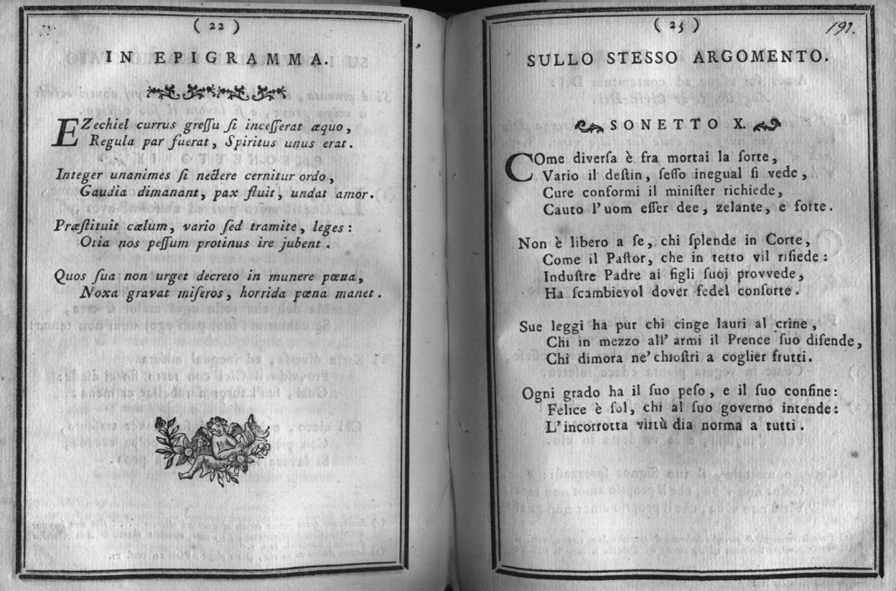 ( 22 )
IN EPIGRAMMA.
EZechiel currus greſſu ſi inceſſerat æquo,
Regula par fuerat, Spiritus unus erat.
Integer unanimes ſi nectere cernitur ordo,
Gaudia dimanant, pax fluit, undat amor.
Præſtituit cælum, vario ſed tramite, leges:
Otia nos peſſum protinus ire jubent.
Quos ſua non urget decreto in munere pœna,
Noxa gravat miſeros, horrida pœna manet.
( 25 )
191.
SULLO STESSO ARGOMENTO.
SONETTO X.
COme diverſa è fra mortai la ſorte,
Vario il deſtin, ſeſſo inegual ſi vede,
Cure conformi il miniſter richiede,
Cauto l'uom eſſer dee, zelante, e forte.
Non è libero a ſe, chi ſplende in Corte,
Come il Paſtor, che in tetto vil riſiede:
Induſtre Padre ai figli ſuoi provvede,
Ha ſcambievol dover fedel conſorte.
Sue leggi ha pur chi cinge lauri al crine,
Chi in mezzo all' armi il Prence ſuo difende,
Chi dimora ne' chioſtri a coglier frutti.
Ogni grado ha il ſuo peſo, e il ſuo confine:
Felice è ſol, chi al ſuo governo intende:
L'incorrotta virtù dia norma a tutti.